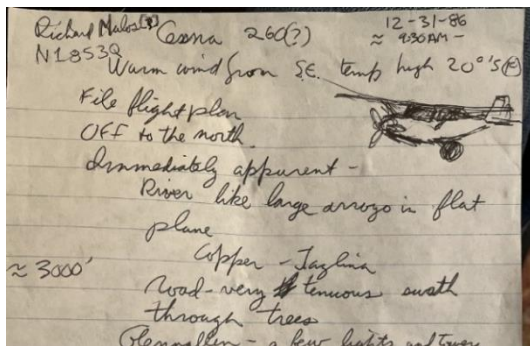 Richard Malos(?) Cessna 260(?) 12-31-86
N1853Q ≈ 930AM –
Warm wind from S.E. temp high 20°'S (F)
File flight plan
OFF to the north.
Immediately apparent –
River like large arroyo in flat
plane
Copper – Tazlina
≈ 3000' Road – very tenuous swath
through trees
Glennallen – a few lights and towers